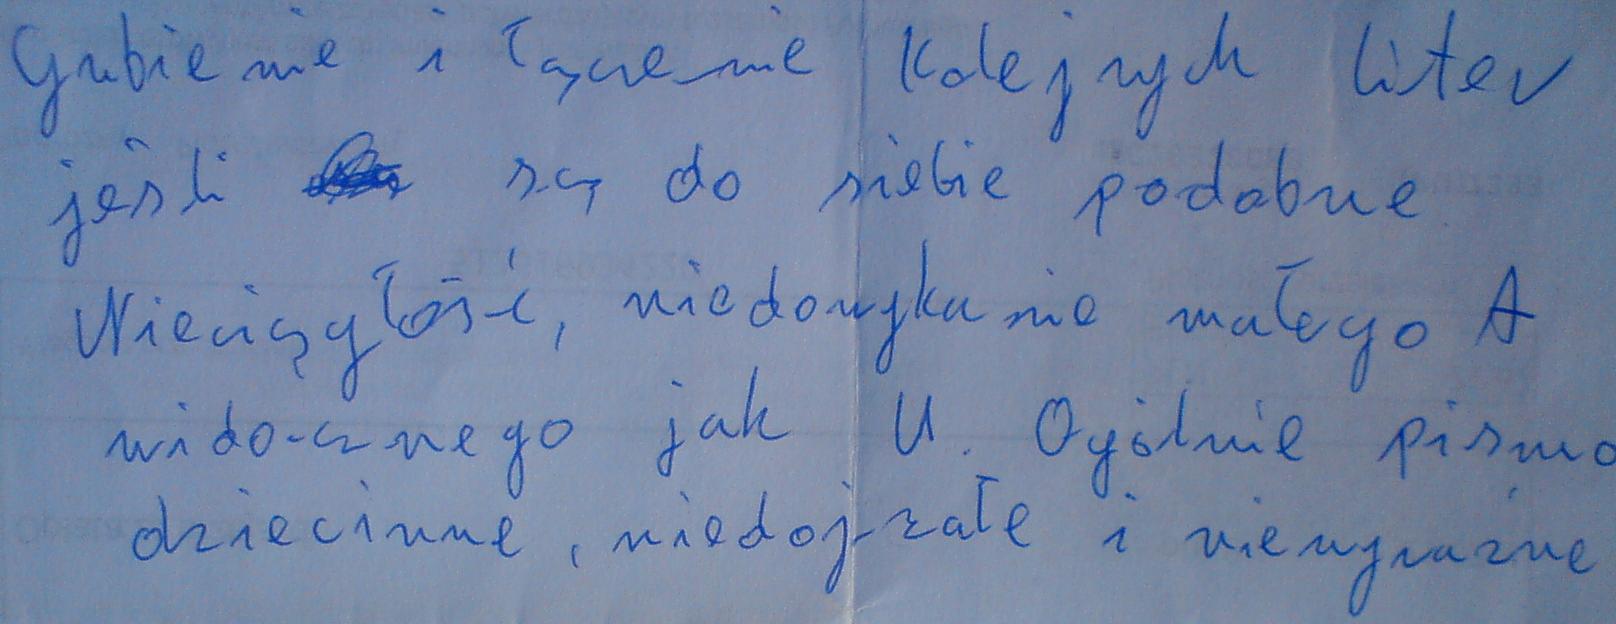 Gubienie i łączenie kolejnych liter
jeśli są do siebie podobne
Nieciągłość, niedomykanie małego A
widocznego jak U. Ogólnie pismo
dziecinne, niedojrzałe i niewyraźne